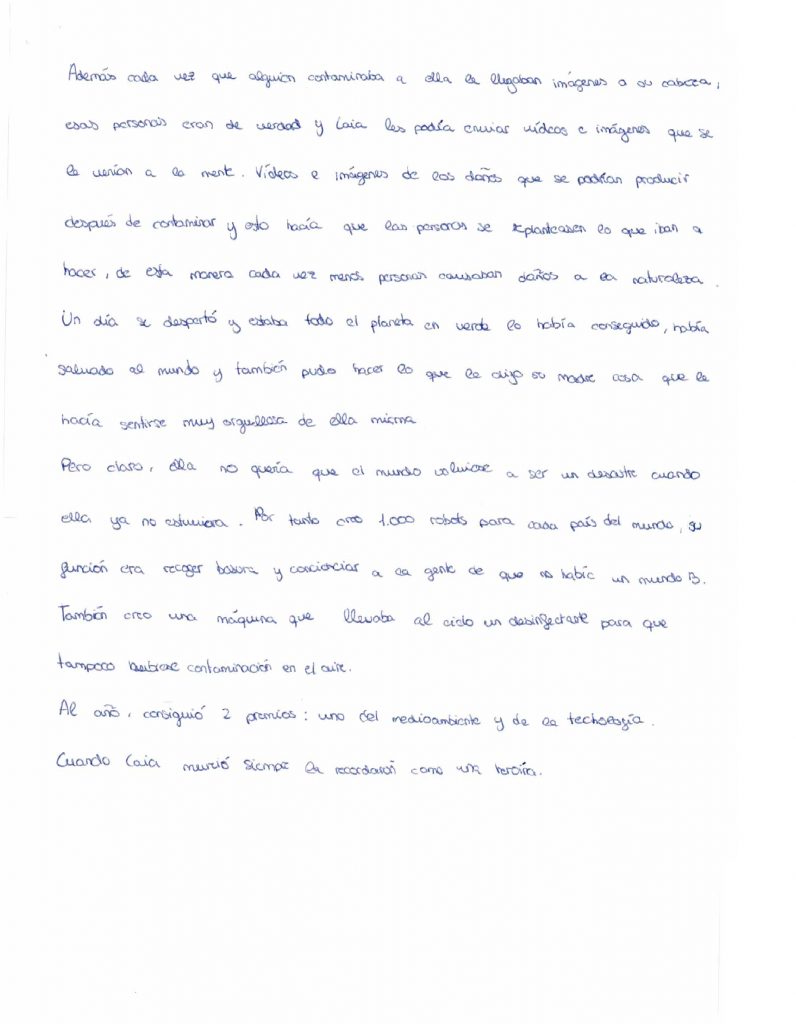 Además cada vez que alguien contaminaba a ella le llegaban imágenes a su cabeza,
esas personas eran de verdad y Laia les podía enviar vídeos e imágenes que se
le venían a la mente. Vídeos e imágenes de los daños que se podrían producir
después de contaminar y esto hacía que las personas se replanteasen lo que iban a
hacer, de esta manera cada vez menos personas causaban daños a la naturaleza.
Un día se despertó y estaba todo el planeta en verde lo había conseguido, había
salvado al mundo y también pudo hacer lo que le dijo su madre cosa que le
hacía sentirse muy orgullosa de ella misma
Pero claro, ella no quería que el mundo volviese a ser un desastre cuando
ella ya no estuviera. Por tanto creo 1.000 robots para cada país del mundo, su
función era recoger basura y concienciar a la gente de que no había un mundo B.
También creo una máquina que llevaba al cielo un desinfectante para que
tampoco hubiese contaminación en el aire.
Al año, consiguió 2 premios: uno del medioambiente y de la tecnología.
Cuando Laia murió siempre la recordaron como una heroína.